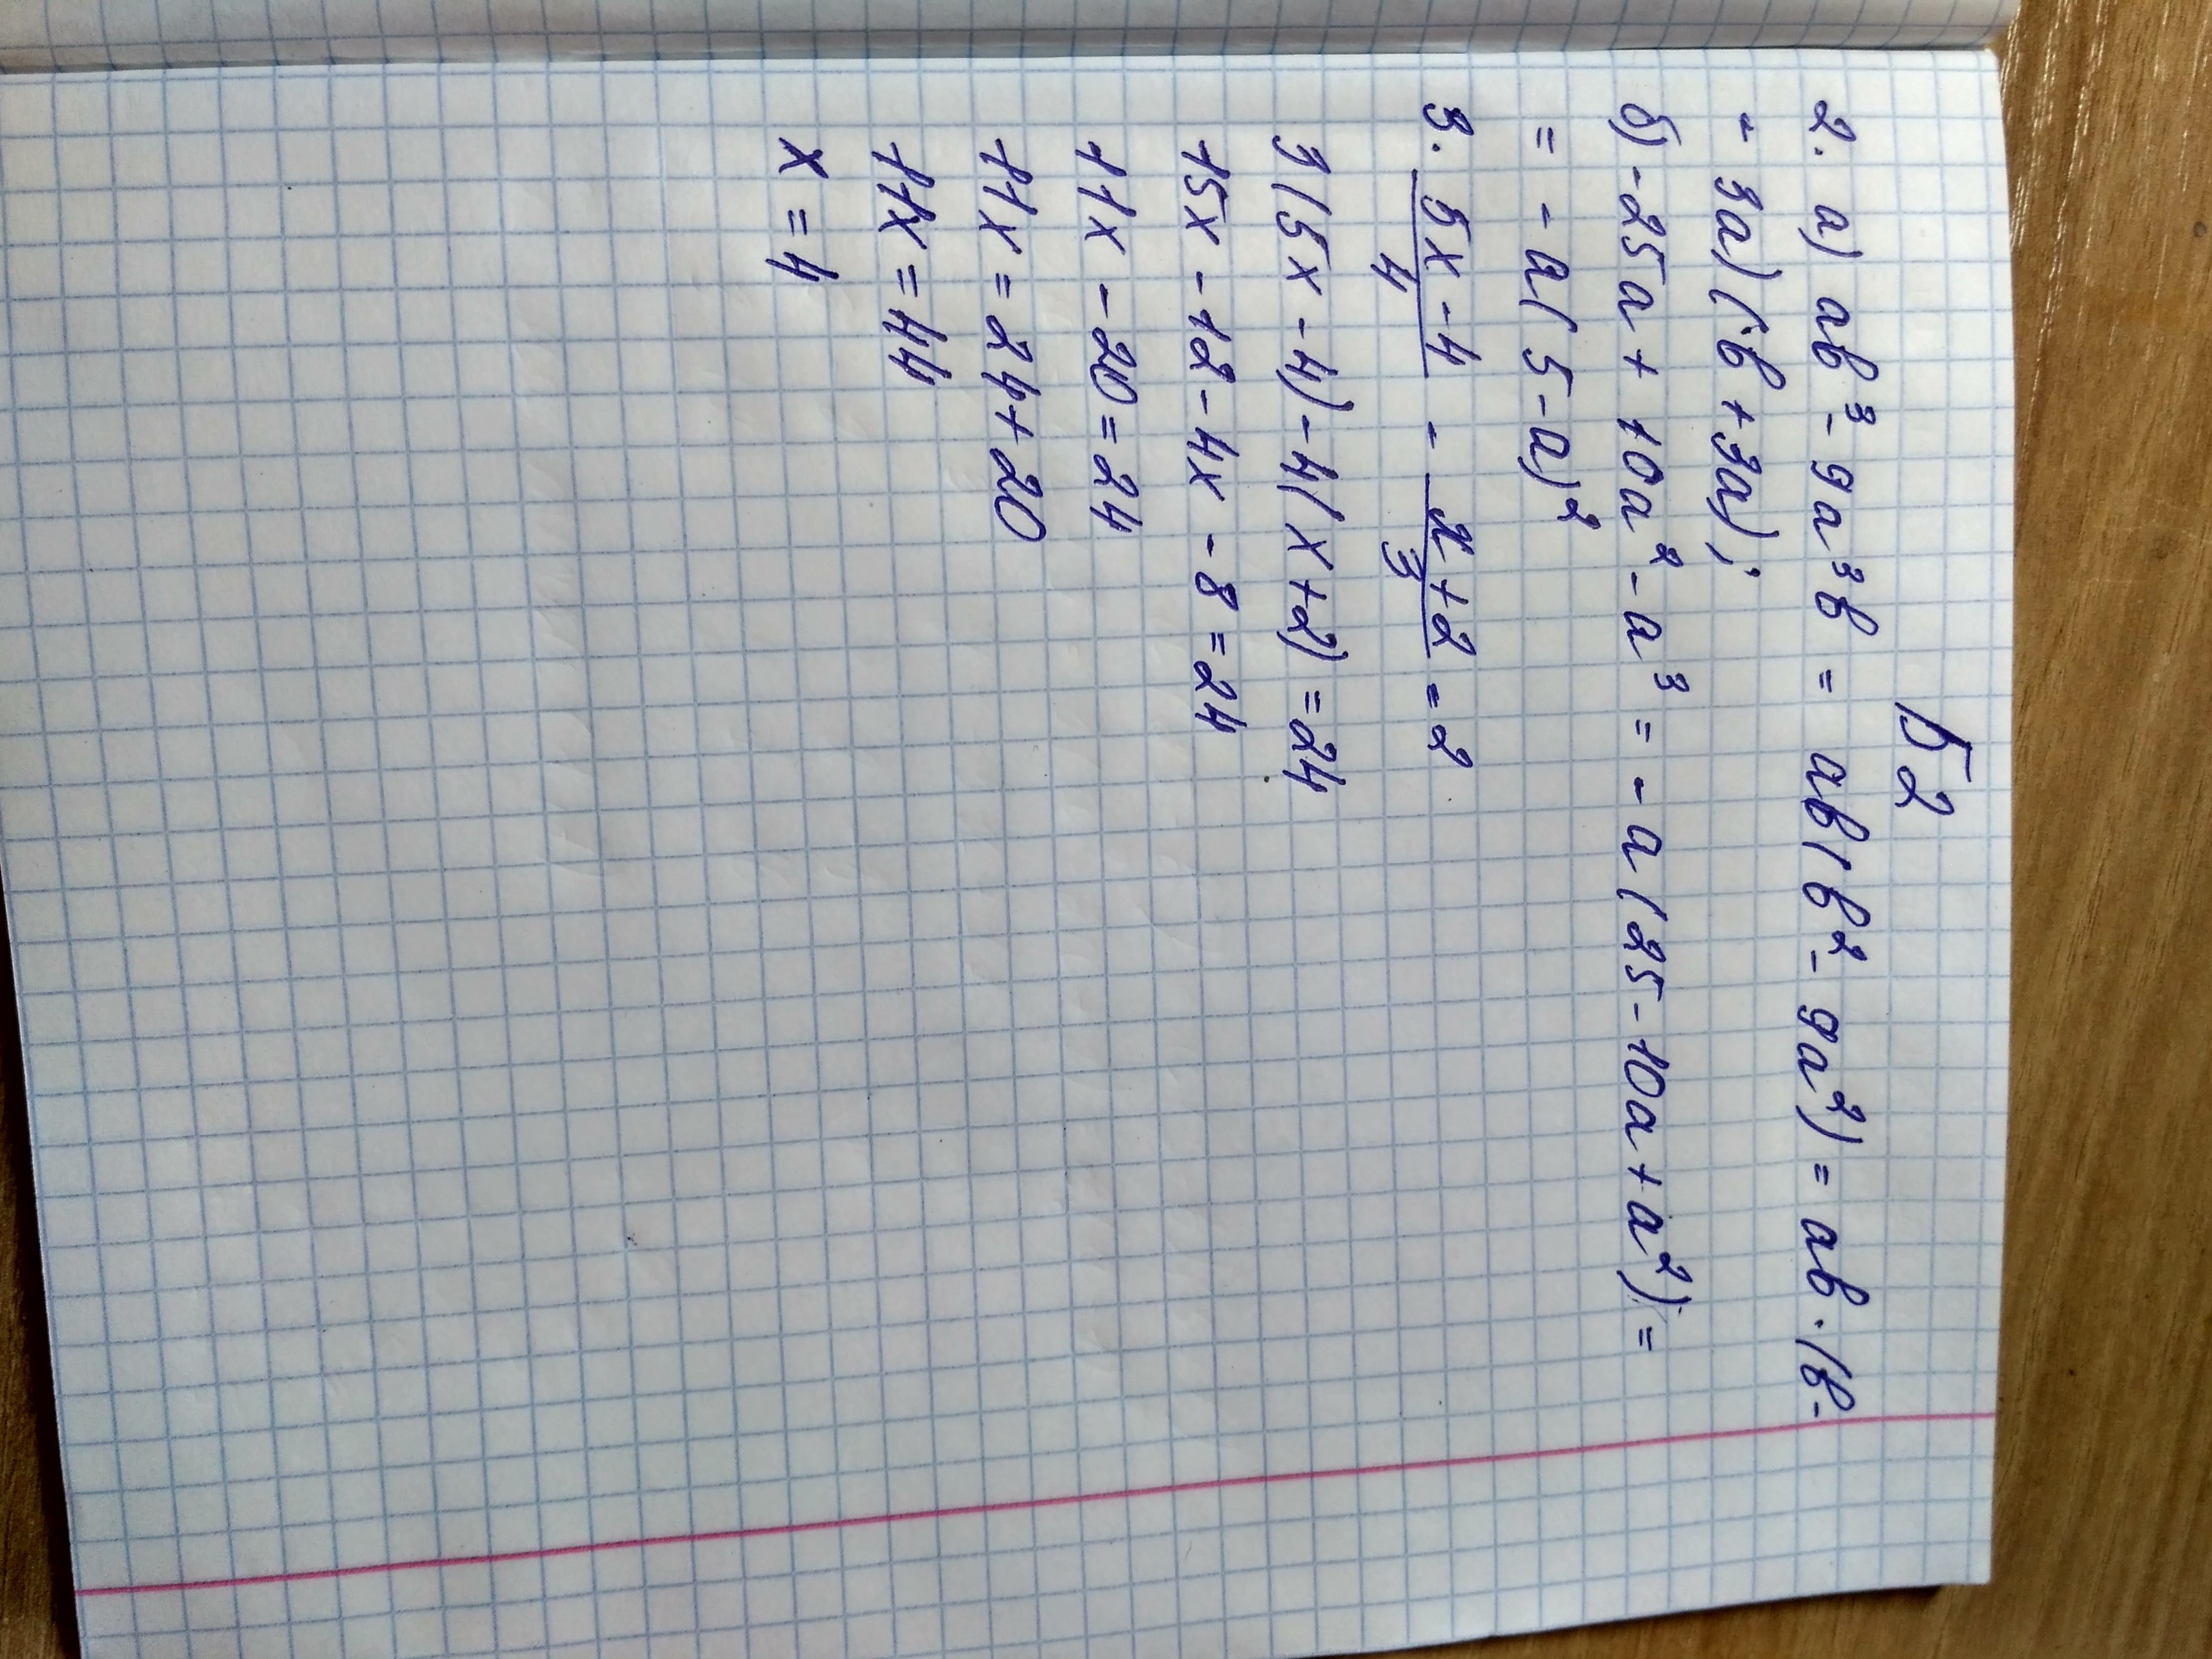 Б2
2. а) ab³ - 9a³b = ab(b² - 9a²) = ab · (b -
- 3a)(b + 3a);
б) -25a + 10a² - a³ = - a(25 - 10a + a²) =
= - a(5 - a)²
3. \frac{5x - 4}{4} - \frac{x + 2}{3} = 2
3(5x - 4) - 4(x + 2) = 24
15x - 12 - 4x - 8 = 24
11x - 20 = 24
11x = 24 + 20
11x = 44
x = 4